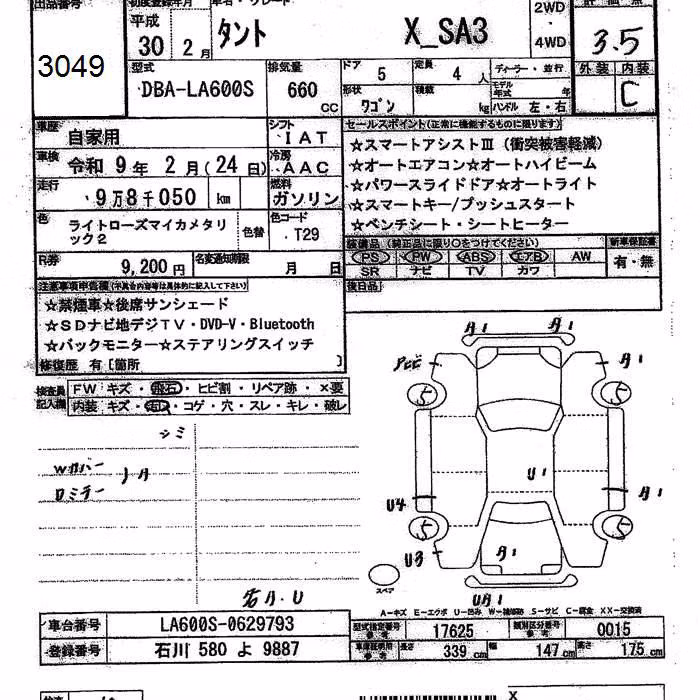 出品番号
3049
初度登録年月
平成 30 2月
車名・グレード
タント X_SA3
2WD
・
4WD
評価点
3.5
外装 内装
C
型式 DBA-LA600S
排気量 660 CC
ドア 5
定員 4 人
ディーラー・並行
形状 ワゴン
積載 kg
モデル年式 年
ハンドル 左・右
車歴 自家用
シフト ・IAT
車検 令和 9年 2月(24日)
冷房 ・AAC
走行 9万8千050 km
燃料 ガソリン
色 ライトローズマイカメタリック2
色替
色コード ・T29
R券 9,200円
名変通知期限 月 日
セールスポイント(正常に機能するものに限ります)
☆スマートアシストⅢ(衝突被害軽減)
☆オートエアコン☆オートハイビーム
☆パワースライドドア☆オートライト
☆スマートキー/プッシュスタート
☆ベンチシート・シートヒーター
装備品(純正品に限り〇をつけてください)
PS PW ABS エアB AW
SR ナビ TV カワ
新車保証書
有・無
後日品
注意事項申告欄(不具合内容等は具体的に記入して下さい)
☆禁煙車☆後席サンシェード
☆SDナビ地デジTV・DVD-V・Bluetooth
☆バックモニター☆ステアリングスイッチ
修復歴 有[箇所 ]
検査員記入欄
FW キズ・飛石・ヒビ割・リペア跡・×要
内装 キズ・汚レ・コゲ・穴・スレ・キレ・破レ
シミ
Wカバー
ロミラー
ノA
名A・U
A1 A1
A1
5 5
U1
U4 A1
5 5
U3 A1
UA1
スペア
A-キズ E-エクボ U-凹み W-補修跡 S-サビ C-腐食 XX-交換済
車台番号 LA600S-0629793
登録番号 石川 580 よ 9887
型式指定番号 参考 17625
類別区分番号 参考 0015
車庫証明用 参考 長さ 339cm 幅 147cm 高さ 175cm
X